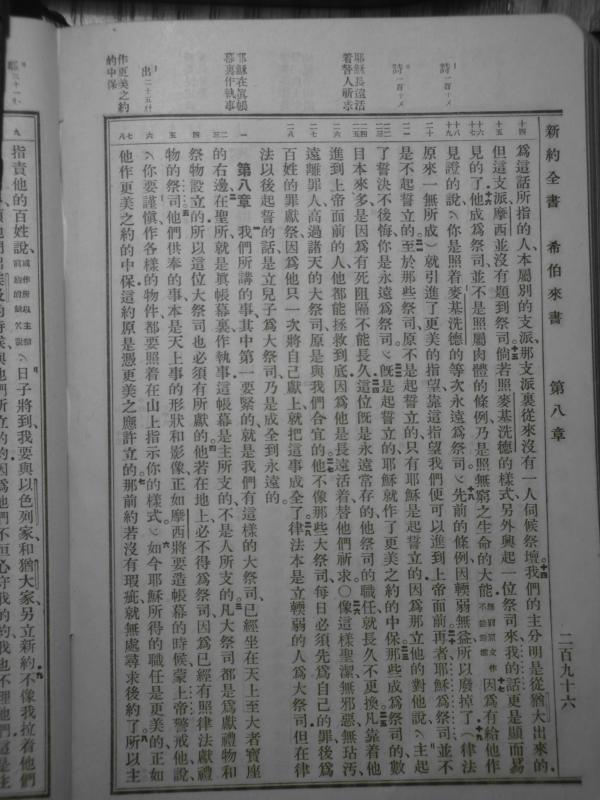 新約全書 希伯來書 第八章 二百九十六
詩一百十
詩一百十
耶穌長遠活
着替人祈求
耶穌在眞帳
幕裏作執事
出二十五
作更美之約
的中保
十四 為這話所指的人、本屬別的支派、那支派裏從來沒有一人伺候祭壇。我們的主分明是從猶大出來的。
十五 但這支派摩西並沒有題到祭司。倘若照麥基洗德的樣式、另外興起一位祭司來、我的話更是顯而易
見的了。他成為祭司、並不是照屬肉體的條例、乃是照無窮之生命的大能。無窮原文作不能毀壞 因為有給他作
見證的說、你是照着麥基洗德的等次永遠為祭司。先前的條例、因輭弱無益、所以廢掉了、（律法
原來一無所成）就引進了更美的指望、靠這指望我們便可以進到上帝面前。再者、耶穌為祭司、並不
是不起誓立的。至於那些祭司、原不是起誓立的、只有耶穌是起誓立的、因為那立他的對他說、主起
了誓決不後悔、你是永遠為祭司。既是起誓立的、耶穌就作了更美之約的中保。那些成為祭司的數
目本來多、是因為有死阻隔不能長久。這位既是永遠常存的、他祭司的職任、就長久不更換。凡靠着他
進到上帝面前的人、他都能拯救到底、因為他是長遠活着替他們祈求。○像這樣聖潔、無邪惡、無玷污、
遠離罪人、高過諸天的大祭司、原是與我們合宜的。他不像那些大祭司、每日必須先為自己的罪、後為
百姓的罪獻祭、因為他只一次將自己獻上、就把這事成全了。律法本是立輭弱的人為大祭司。但在律
法以後起誓的話、是立兒子為大祭司、乃是成全到永遠的。
一 第八章 我們所講的事、其中第一要緊的、就是我們有這樣的大祭司、已經坐在天上至大者寶座
的右邊、在聖所、就是眞帳幕裏、作執事。這帳幕是主所支的、不是人所支的。凡大祭司都是為獻禮物和
祭物設立的。所以這位大祭司也必須有所獻的。他若在地上、必不得為祭司、因為已經有照律法獻禮
物的祭司。他們供奉的事、本是天上事的形狀和影像、正如摩西將要造帳幕的時候、蒙上帝警戒他、說、
你要謹愼、作各樣的物件、都要照着在山上指示你的樣式。如今耶穌所得的職任是更美的、正如
他作更美之約的中保。這約原是憑更美之應許立的。那前約若沒有瑕疵、就無處尋求後約了。所以主
九 指責他的百姓說、日子將到、我要與以色列家、和猶大家、另立新約。不像我拉着他們